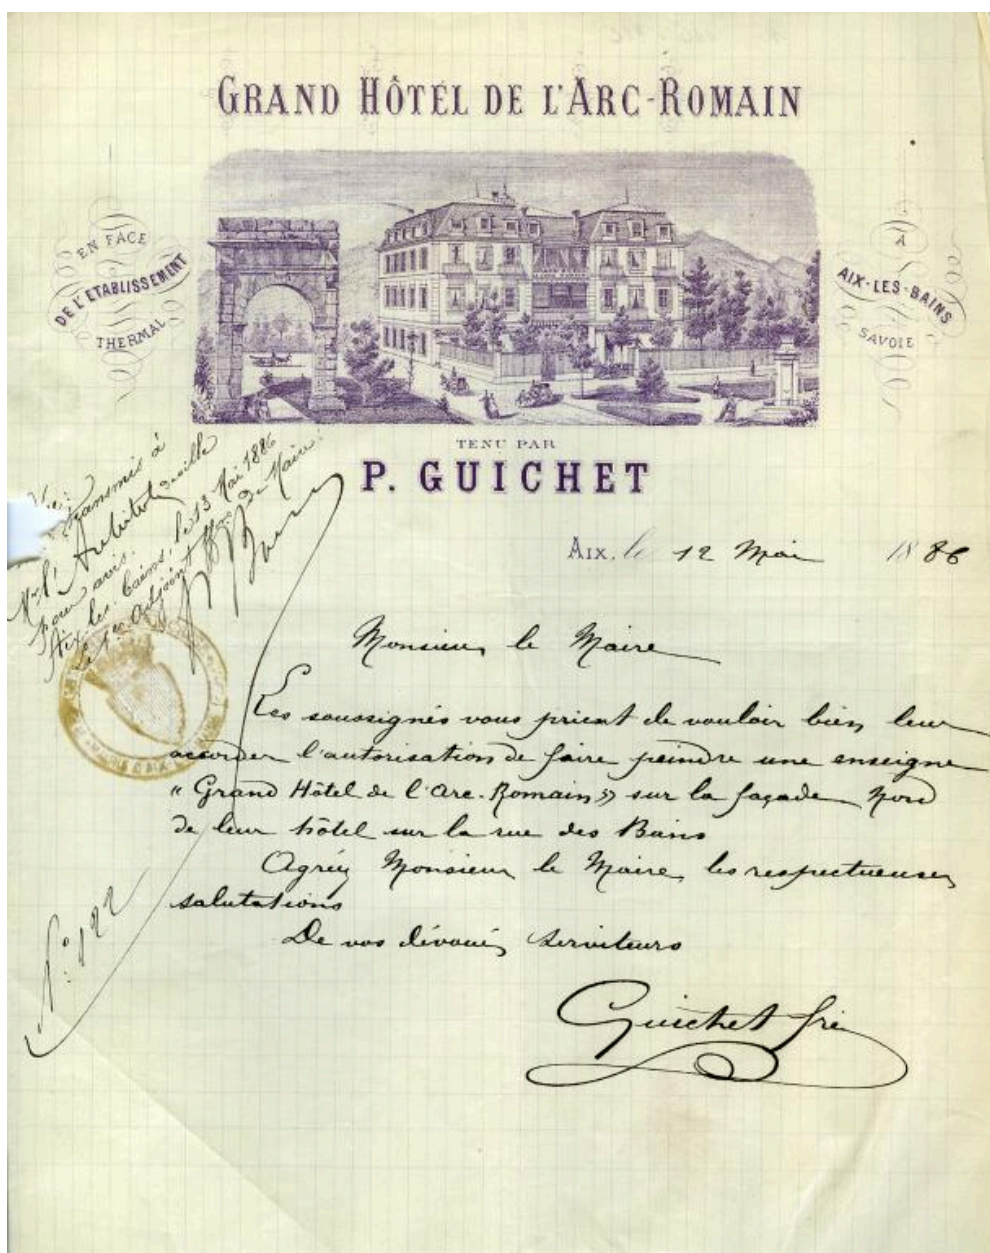 GRAND HÔTEL DE L'ARC-ROMAIN
EN FACE
DE L'ETABLISSEMENT
THERMAL
À
AIX-LES-BAINS
SAVOIE
TENU PAR
P. GUICHET
Aix, le 12 Mai 1886
transmis à
Mr l'Architecte de ville
pour avis.
Aix les bains, le 13 Mai 1886
Maire
Monsieur le Maire
Les soussignés vous prient de vouloir bien leur
accorder l'autorisation de faire peindre une enseigne
« Grand Hôtel de l'Arc-Romain » sur la façade Nord
de leur hôtel sur la rue des Bains
Agréez Monsieur le Maire, les respectueuses
salutations
De vos dévoués serviteurs
Guichet
N°: 122